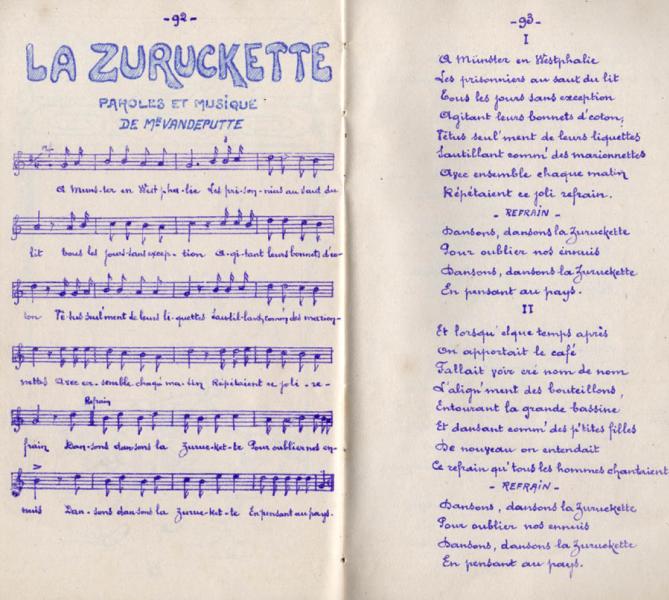 -92-
LA ZURUCKETTE
PAROLES ET MUSIQUE
DE Mr VANDEPUTTE
A Muns-ter en West pha-lie Les pri-son-niers au saut du
lit tous les jours sans excep-tion A-gi-tant leurs bonnets d'co-
ton Pê-tus seul'ment de leurs li-quettes Sautil-lant comm' des marion-
nettes Avec en-semble chaqe ma-tin Répétaient ce joli-re-
Refrain
frain Dan-sons dansons la Zuruc-ket-te Pour oublier nos en-
nuis Dan-sons dansons la Zuruc-ket-te En pensant au pays.
-93-
I
A Münster en Westphalie
Les prisonniers au saut du lit
Tous les jours sans exception
Agitant leurs bonnets d'coton,
Vêtus seul'ment de leurs liquettes
Sautillant comm' des marionnettes
Avec ensemble chaque matin
Répétaient ce joli refrain.
- REFRAIN -
Dansons, dansons la Zuruckette
Pour oublier nos ennuis
Dansons, dansons la Zuruckette
En pensant au pays.
II
Et lorsqu'elque temps après
On apportait le café
Fallait voir cré nom de nom
L'align'ment des bouteillons,
Entourant la grande bassine
Et dansant comm' des p'tites filles
De nouveau on entendait
Ce refrain qu'tous les hommes chantaient
- REFRAIN -
Dansons, dansons la Zuruckette
Pour oublier nos ennuis
Dansons, dansons la Zuruckette
En pensant au pays.